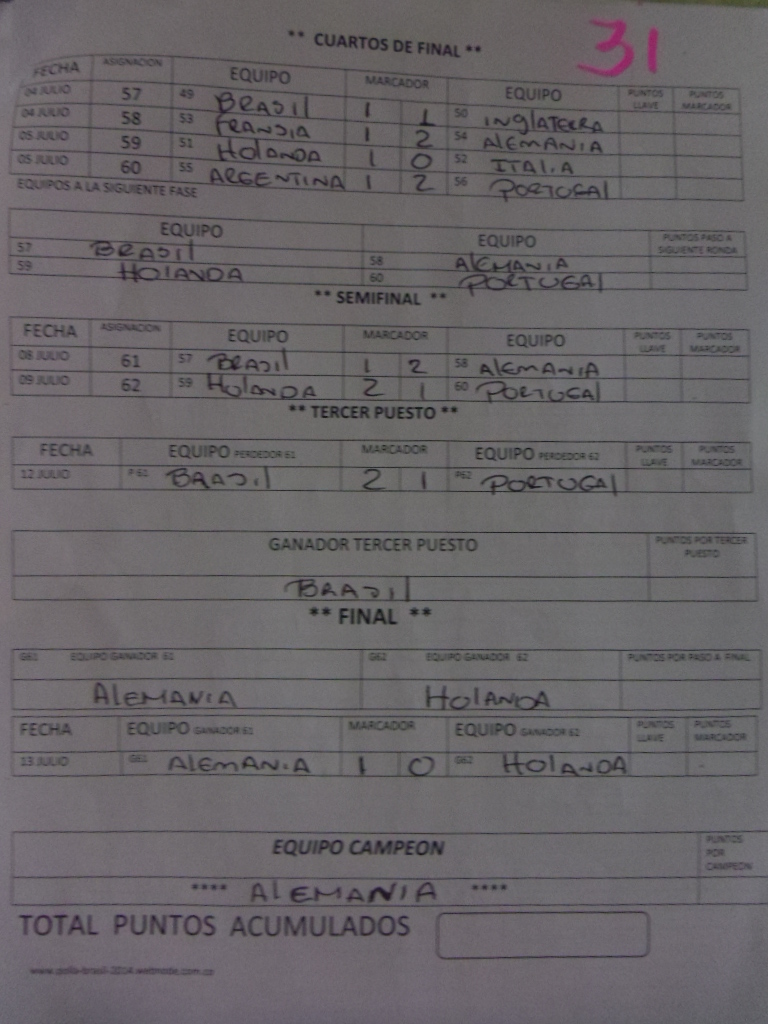 ** CUARTOS DE FINAL ** 31
FECHA ASIGNACION EQUIPO MARCADOR EQUIPO PUNTOS LLAVE PUNTOS MARCADOR
04 JULIO 57 49 BRASIL 1 1 50 INGLATERRA
04 JULIO 58 53 FRANSIA 1 2 54 ALEMANIA
05 JULIO 59 51 HOLANDA 1 0 52 ITALIA
05 JULIO 60 55 ARGENTINA 1 2 56 PORTUGAL
EQUIPOS A LA SIGUIENTE FASE
EQUIPO EQUIPO PUNTOS PASO A SIGUIENTE RONDA
57 BRASIL 58 ALEMANIA
59 HOLANDA 60 PORTUGAL
** SEMIFINAL **
FECHA ASIGNACION EQUIPO MARCADOR EQUIPO PUNTOS LLAVE PUNTOS MARCADOR
08 JULIO 61 57 BRASIL 1 2 58 ALEMANIA
09 JULIO 62 59 HOLANDA 2 1 60 PORTUGAL
** TERCER PUESTO **
FECHA EQUIPO PERDEDOR 61 MARCADOR EQUIPO PERDEDOR 62 PUNTOS LLAVE PUNTOS MARCADOR
12 JULIO P61 BRASIL 2 1 P62 PORTUGAL
GANADOR TERCER PUESTO PUNTOS POR TERCER PUESTO
BRASIL
** FINAL **
G61 EQUIPO GANADOR 61 G62 EQUIPO GANADOR 62 PUNTOS POR PASO A FINAL
ALEMANIA HOLANDA
FECHA EQUIPO GANADOR 61 MARCADOR EQUIPO GANADOR 62 PUNTOS LLAVE PUNTOS MARCADOR
13 JULIO G61 ALEMANIA 1 0 G62 HOLANDA
EQUIPO CAMPEON PUNTOS POR CAMPEON
**** ALEMANIA ****
TOTAL PUNTOS ACUMULADOS
www.polla-brasil-2014.webnode.com.co